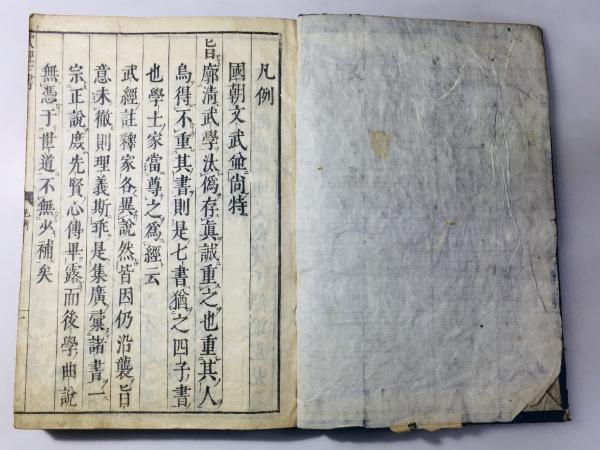 凡例
國朝文武並尚特
旨廓清武學汰僞存眞誠重之也重其人
烏得不重其書則是七書猶之四子書
也學士家當尊之爲經云
武經註釋家各異說然皆因仍沿襲旨
意未徹則理義斯乖是集廣彙諸書一
宗正說庶先賢心傳畢露而後學曲說
無憑于世道不無少補矣